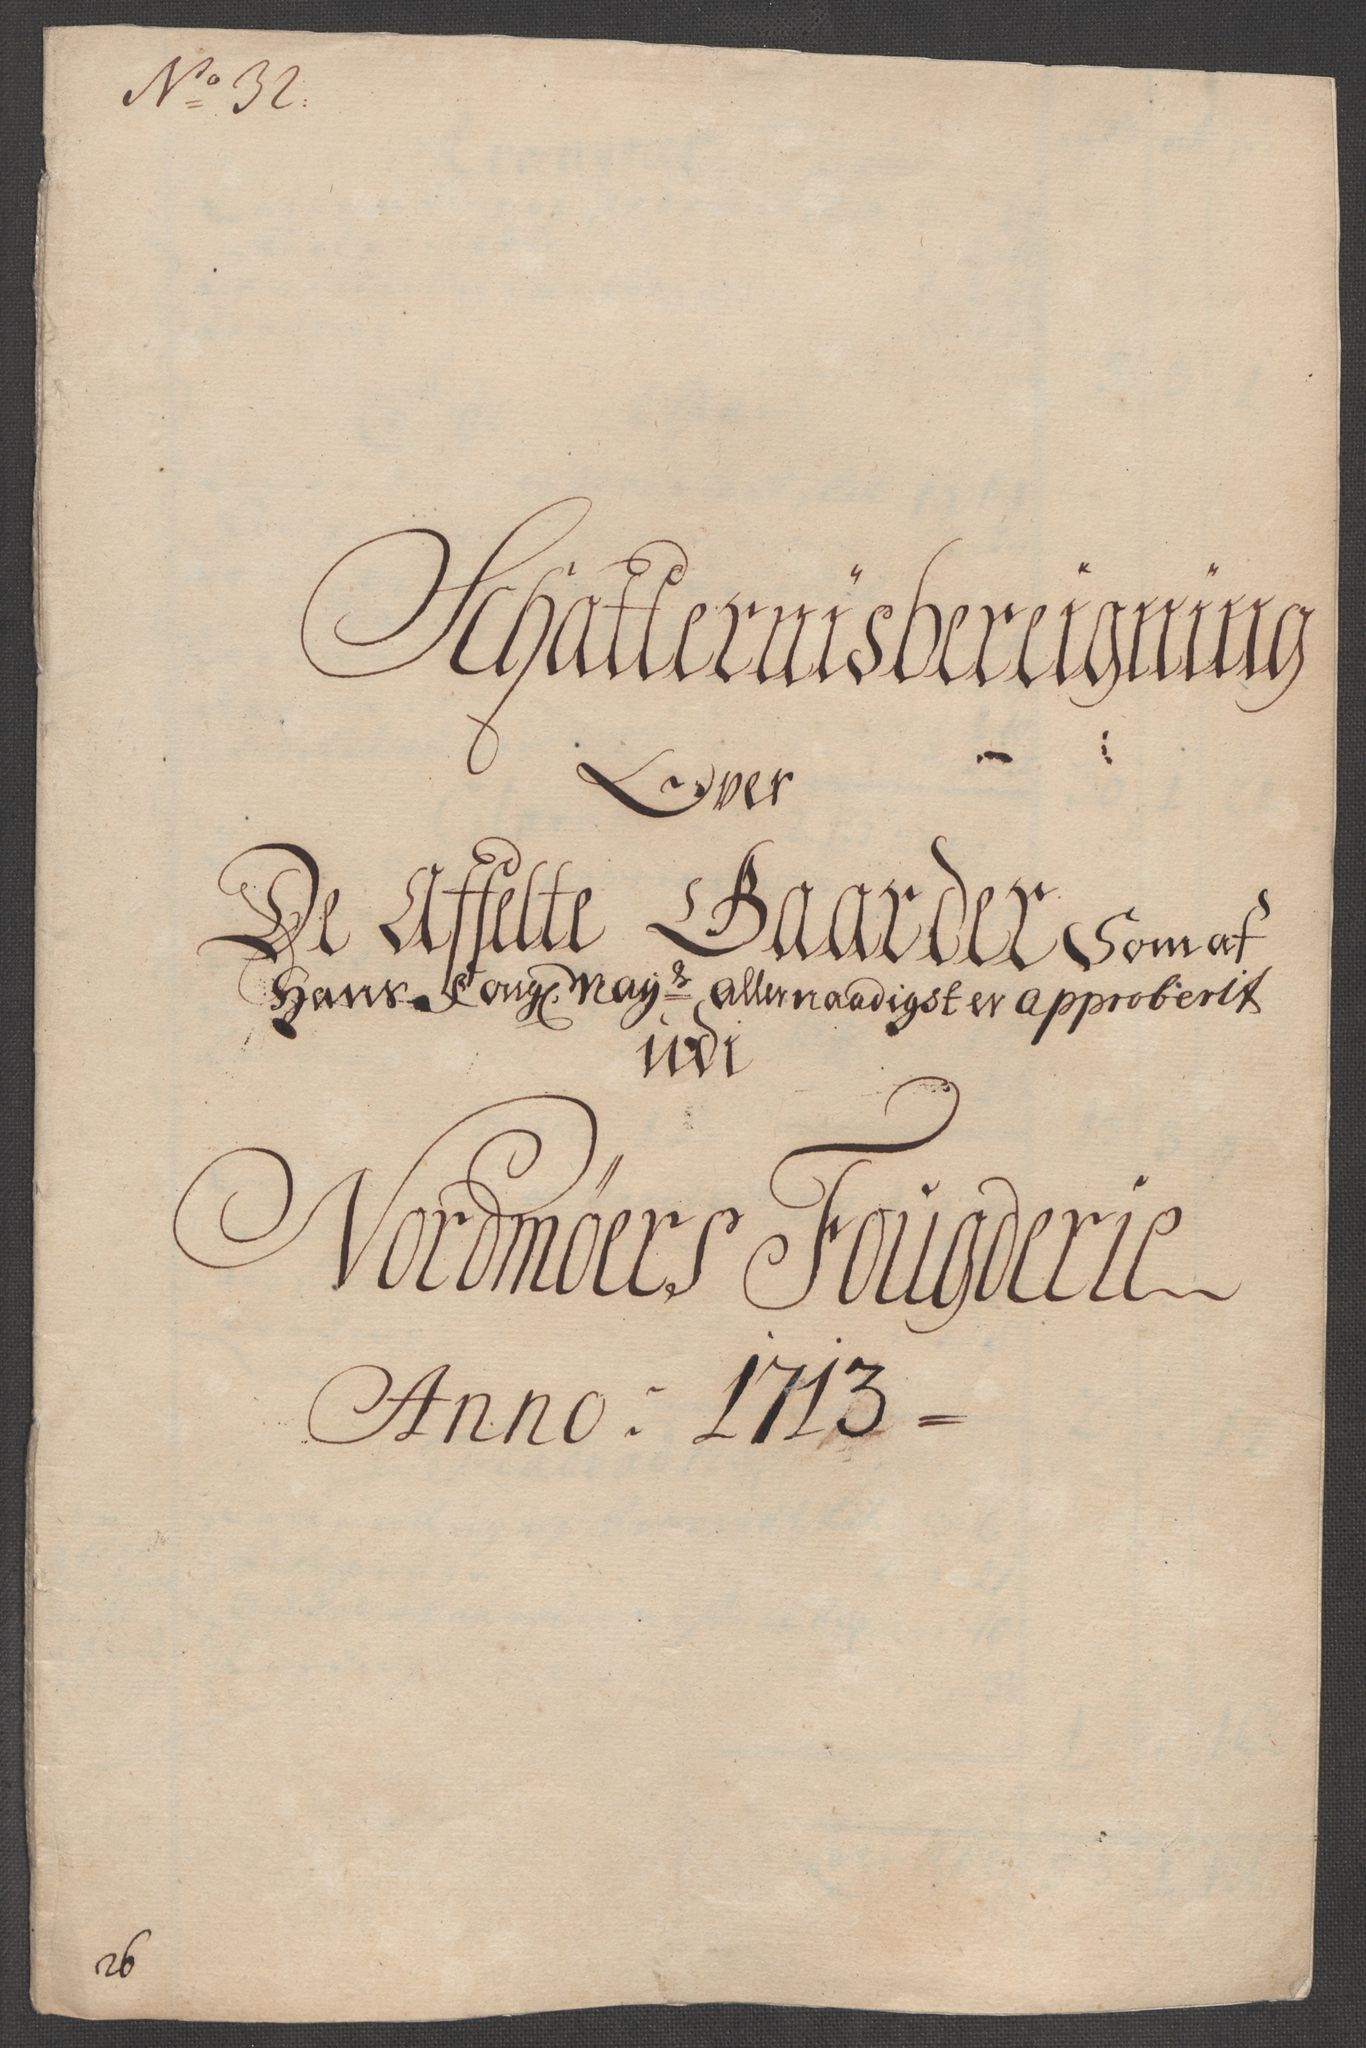 No 32.
Schatternisbereigning
Over
De Affelte Gaarder Som af
Hans Kongl. Mayts allernaadigst er approberit
udi
Nordmöers Fougderie
Anno: 1713 =
26